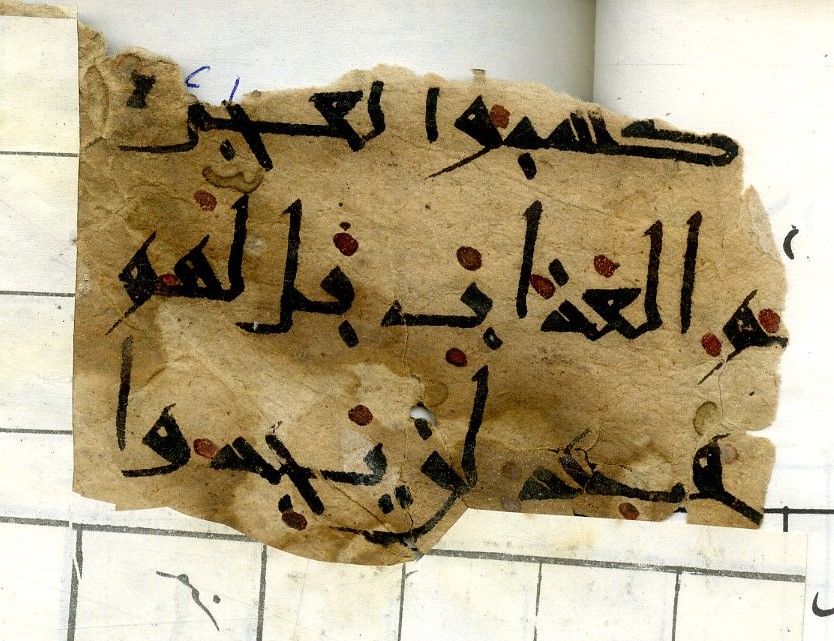 كسبوا لعجل
لهم العذاب بل لهم
موعد لن يجدوا